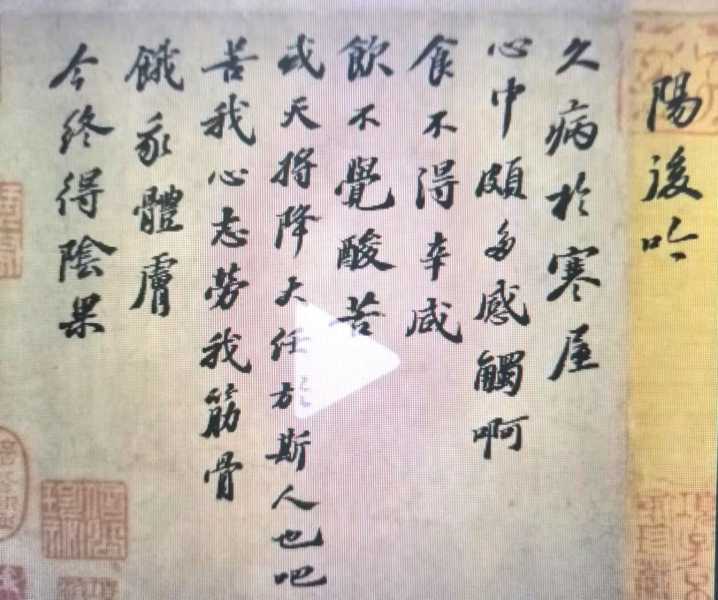 陽後吟
久病於寒屋
心中頗多感觸啊
食不得辛咸
飲不覺酸苦
或天將降大任於斯人也吧
苦我心志勞我筋骨
餓我體膚
今終得陰果